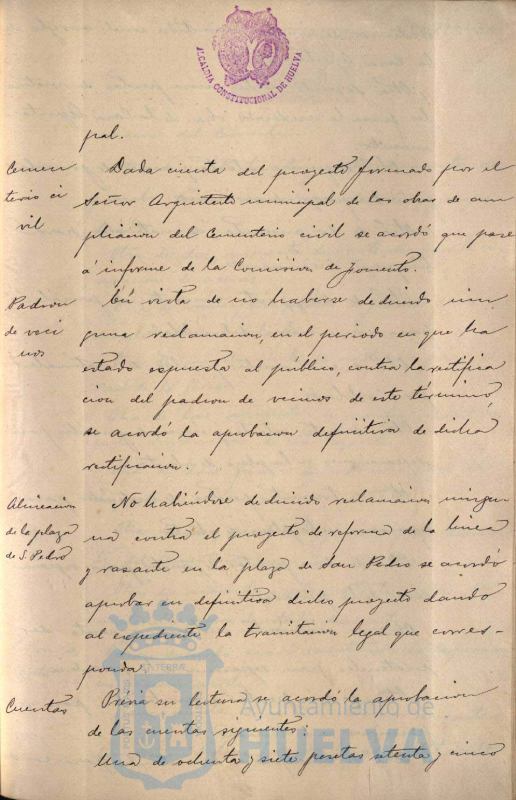 ALCALDIA CONSTITUCIONAL DE HUELVA
pal.
Cemen
terio ci
vil
Dada cuenta del proyecto formado por el
Señor Arquitecto municipal de las obras de am
pliacion del Cementerio civil se acordó que pase
á informe de la Comision de Fomento.
Padron
de veci
nos
En vista de no haberse deducido nin
guna reclamacion, en el periodo en que ha
estado espuesta al público, contra la rectifica
cion del padron de vecinos de este término,
se acordó la aprobacion definitiva de dicha
rectificacion.
Alineacion
de la plaza
de S. Pedro
No habiéndose deducido reclamacion ningu
na contra el proyecto de reforma de la linea
y rasante en la plaza de San Pedro se acordó
aprobar en definitiva dicho proyecto dando
al expediente la tramitacion legal que corres-
ponda.
Cuentas
Prévia su lectura se acordó la aprobacion
de las cuentas siguientes:
Una de ochenta y siete pesetas setenta y cinco
Ayuntamiento de
HUELVA